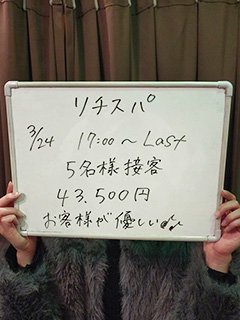 リチスパ
3/24 17:00〜Last
5名様接客
43,500円
お客様が優しい♪♪